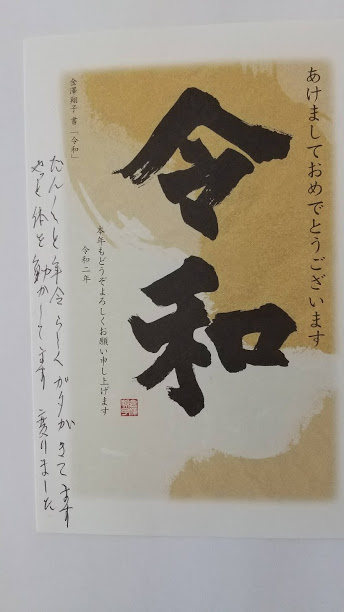 あけましておめでとうございます
令和
本年もどうぞよろしくお願い申し上げます
令和二年
金澤 翔子・書「令和」
だん〱と年令らしくガタがきてます
やっと体を動かしてます